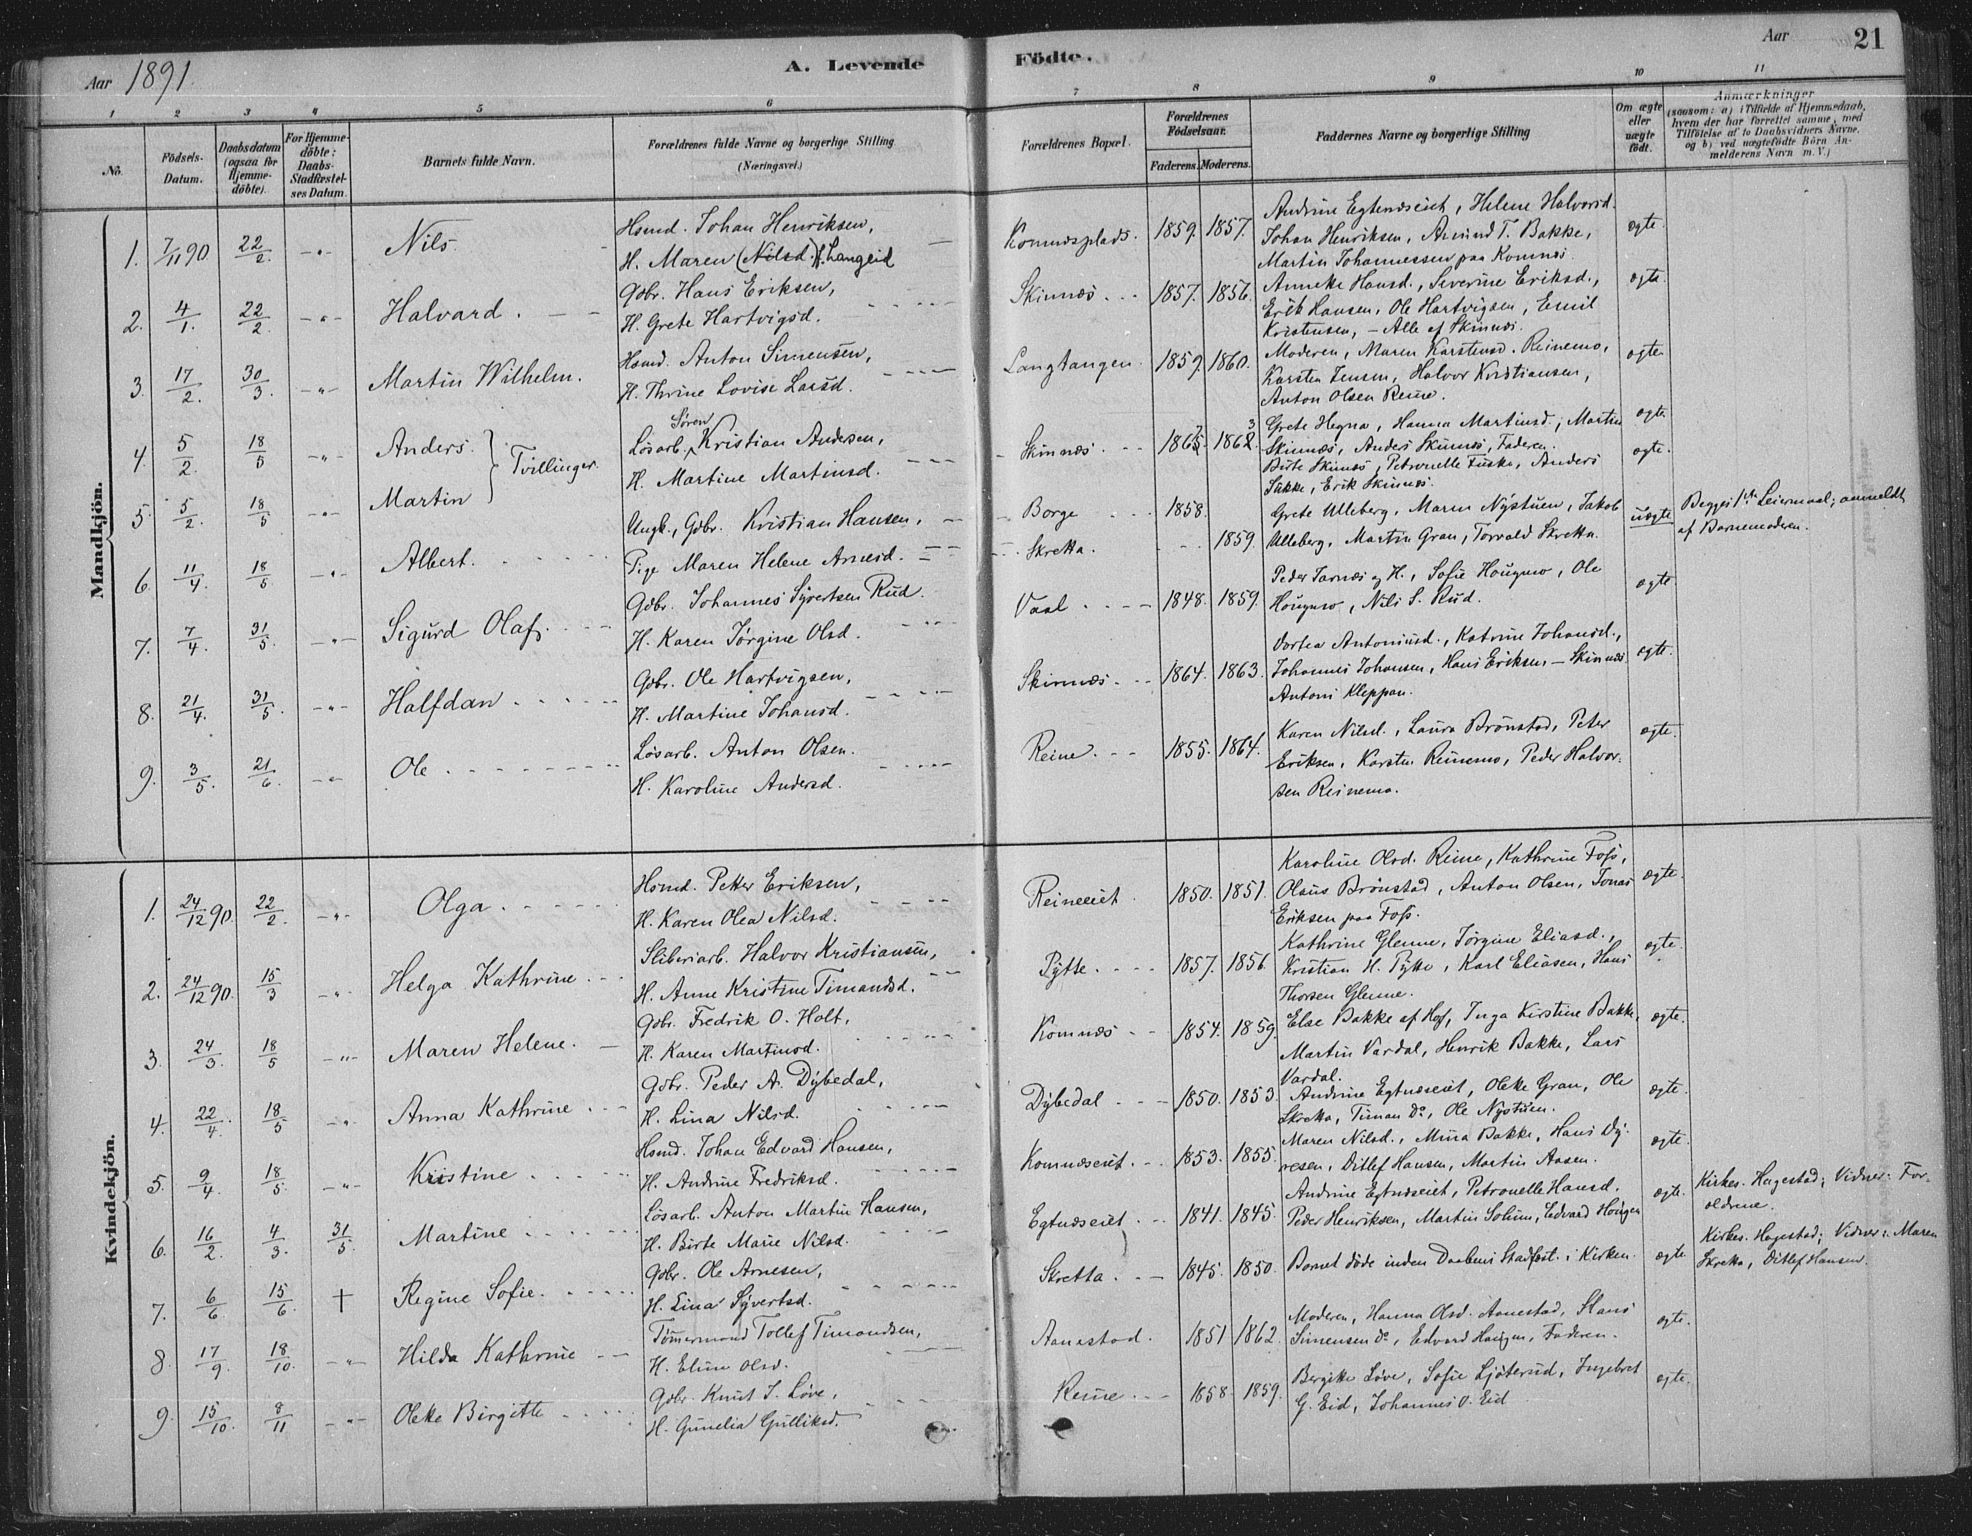 Aar 1891.
A. Levende Födte.
Aar
21
1 2 3 4 5 6 7 8 9 10 11
No.
Födsels-Datum.
Daabsdatum (ogsaa for Hjemmedöbte).
For Hjemmedöbte: Daabs-Stadfæstelses Datum.
Barnets fulde Navn.
Forældrenes fulde Navne og borgerlige Stilling (Næringsvei.)
Forældrenes Bopæl.
Forældrenes Födselsaar.
Faderens. Moderens.
Faddernes Navne og borgerlige Stilling
Om ægte eller uægte födt.
Anmærkninger
(saasom: a) i Tilfælde af Hjemmedaab, hvem der har forrettet samme, med Tilföielse af to Daabsvidners Navne, og b) ved uægtefödte Börn Anmelderens Navn m. V.)
Mandkjön.
1. 7/11 90 22/2 -"- Nils
Hsmd. Johan Henriksen,
H. Maren (Nilsd.) f. Langeid
Komnæsplads. 1859. 1857.
Andrine Egtenæseiet, Helene Halvorsd.
Johan Henriksen, Amund T. Bakke,
Martin Johannessen paa Komnæs.
ægte.
2. 4/1. 22/2. -"- Halvard.
Gdbr. Hans Eriksen,
H. Grete Hartvigsd.
Skinnæs 1857. 1856.
Anneke Hansd., Severine Eriksd.,
Erik Hansen, Ole Hartvigsen, Emil
Kristensen, - Alle af Skinnæs.
ægte.
3. 17/2. 30/3. -"- Martin Wilhelm.
Hsmd. Anton Simensen,
H. Thrine Lovise Larsd.
Langtangen. 1859. 1860.
Moderen, Maren Karstensd. Reinemo,
Karsten Jensen, Halvor Kristiansen,
Anton Olsen Reine.
ægte.
4. 5/2. 18/5 -"- Anders. } Tvillinger.
Søren
Løsarb. Kristian Andersen,
H. Martine Martinsd.
Skinnæs 1865 1862
Grete Hegna, Hanna Martinsd., Martin
Skinnæs, Anders Skinnæs, Faderen.
ægte.
5. 5/2. 18/5 -"- Martin
Birte Skinnæs, Petronelle Fuske, Anders
Sakke, Erik Skinnæs.
ægte.
6. 11/4. 18/5. -"- Albert.
Ungk., Gdbr. Kristian Hansen,
Pige Maren Helene Arnesd.
Borge 1858.
Skretta. 1859.
Grete Ulleberg, Maren Nystuen, Jakob
Ulleberg, Martin Gran, Torvald Skretta.
uægte
Begges 1ste Leiermaal; anmeldt
af Barnemoderen.
7. 7/4. 31/5. -"- Sigurd Olaf.
Gdbr. Johannes Syvertsen Rud.
H. Karen Jørgine Olsd.
Vaal 1848. 1859.
Peder Jarnæs og H., Sofie Hougmo, Ole
Hougmo, Nils S. Rud.
ægte
8. 21/4. 31/5. -"- Halfdan
Gdbr. Ole Hartvigsen,
H. Martine Johansd.
Skinnæs. 1864. 1863.
Dortea Antoniusd., Katrine Johansd.,
Johannes Johansen, Hans Eriksen - Skinnæs
Antoni Kleppan.
ægte.
9. 3/5. 21/6. -"- Ole
Løsarb. Anton Olsen.
H. Karoline Andersd.
Reine. 1855. 1864.
Karen Nilsd., Laura Brønstad, Peter
Eriksen, Karsten Reinemo, Peder Halvor-
sen Reinemo.
ægte.
Kvindekjön.
1. 24/12 90. 22/2. -"- Olga
Hsmd. Petter Eriksen,
H. Karen Olea Nilsd.
Reineeiet. 1850. 1851.
Karoline Olsd. Reine, Kathrine Foss,
Olaus Brønstad, Anton Olsen, Jonas
Eriksen paa Foss.
ægte.
2. 24/12 90. 15/3 -"- Helga Kathrine
Sliberiarb. Halvor Kristiansen,
H. Anne Kristine Timandsd.
Pytte. 1857. 1856.
Kathrine Glenne, Jørgine Eliasd.,
Kristian H. Pytte, Karl Eliasen, Hans
Thorsen Glenne.
ægte.
3. 24/3. 18/5 -"- Maren Helene.
Gdbr. Fredrik O. Holt,
H. Karen Martinsd.
Komnæs 1854. 1859.
Else Bakke af Hof, Inga Kirstine Bakke,
Martin Vardal, Henrik Bakke, Lars
Vardal.
ægte.
4. 22/4. 18/5 -"- Anna Kathrine
Gdbr. Peder A. Dybedal,
H. Lina Nilsd.
Dybedal 1850. 1853.
Andrine Egtnæseiet, Oleke Gran, Ole
Skretta, Timan Do, Ole Nystuen.
ægte.
5. 9/4 18/5. -"- Kristine
Hsmd. Johan Edvard Hansen,
H. Andrine Fredriksd.
Komnæseiet. 1853. 1855.
Maren Nilsd., Mina Bakke, Hans Dy-
resen, Ditlef Hansen, Martin Aasen.
ægte.
6. 16/2. 4/3. 31/5. Martine
Løsarb. Anton Martin Hansen,
H. Birte Marie Nilsd.
Egtnæseiet. 1841. 1845.
Andrine Egtnæseiet, Petronelle Hansd.
Peder Henriksen, Martin Solum, Edvard Hougen
ægte.
Kirkes. Hagestad; Vidner: For-
ældrene.
7. 6/6 15/6. † Regine Sofie.
Gdbr. Ole Arnesen,
H. Lina Syvertsd.
Skretta. 1845. 1850.
Barnet døde inden Daabens Stadfæst. i Kirken.
ægte
Kirkes. Hagestad; Vidner: Maren
Skretta, Ditlef Hansen.
8. 17/9 18/10. -"- Hilda Kathrine
Tømmermand Tollef Timandsen,
H. Eline Olsd.
Aanestad. 1851 1862.
Moderen, Hanna Olsd. Aanestad, Hans
Simensen Do, Edvard Haugen, Faderen.
ægte.
9. 15/10. 8/11 -"- Oleke Birgitte
Gdbr. Knut J. Løve,
H. Gunelia Gulliksd.
Reine 1858. 1859.
Bergitte Løve, Sofie Ljøterud, Ingebret
G. Eid, Johannes O. Eid
ægte.